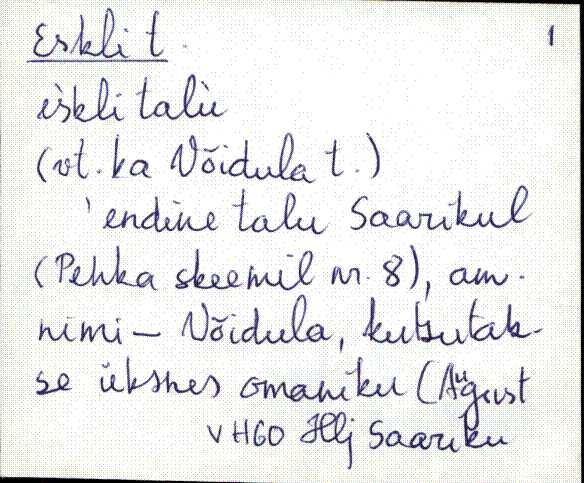 Eskli t. 1
èskli talù
(vt. ka Võidula t.)
'endine talu Saarikul
(Pehka skeemil nr. 8), am.
nimi – Võidula, kutsutak-
se üksnes omaniku (August
VHGO Hlj Saariku